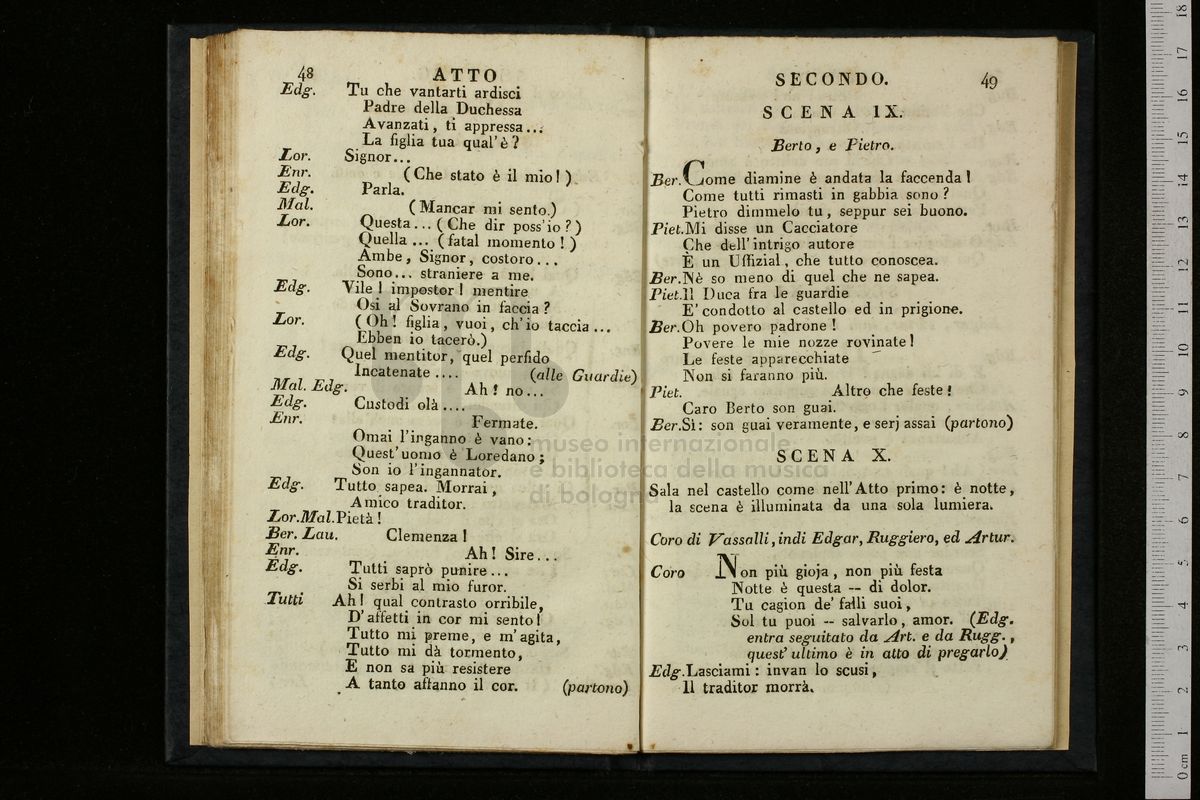 48
ATTO
Edg. Tu che vantarti ardisci
Padre della Duchessa
Avanzati, ti appressa...
La figlia tua qual'è?
Lor. Signor...
Enr. (Che stato è il mio!)
Edg. Parla.
Mal. (Mancar mi sento.)
Lor. Questa... (Che dir poss'io?)
Quella ... (fatal momento!)
Ambe, Signor, costoro...
Sono... straniere a me.
Edg. Vile! impostor! mentire
Osi al Sovrano in faccia?
Lor. (Oh! figlia, vuoi, ch'io taccia...
Ebben io tacerò.)
Edg. Quel mentitor, quel perfido
Incatenate .... (alle Guardie)
Mal. Edg. Ah! no...
Edg. Custodi olà....
Enr. Fermate.
Omai l'inganno è vano:
Quest'uomo è Loredano;
Son io l'ingannator.
Edg. Tutto sapea. Morrai,
Amico traditor.
Lor.Mal.Pietà!
Ber. Lau. Clemenza!
Enr. Ah! Sire...
Edg. Tutti saprò punire...
Si serbi al mio furor.
Tutti Ah! qual contrasto orribile,
D'affetti in cor mi sento!
Tutto mi preme, e m'agita,
Tutto mi dà tormento,
E non sa più resistere
A tanto affanno il cor. (partono)
SECONDO.
49
SCENA IX.
Berto, e Pietro.
Ber. Come diamine è andata la faccenda!
Come tutti rimasti in gabbia sono?
Pietro dimmelo tu, seppur sei buono.
Piet.Mi disse un Cacciatore
Che dell'intrigo autore
È un Uffizial, che tutto conoscea.
Ber.Nè so meno di quel che ne sapea.
Piet.Il Duca fra le guardie
E' condotto al castello ed in prigione.
Ber.Oh povero padrone!
Povere le mie nozze rovinate!
Le feste apparecchiate
Non si faranno più.
Piet. Altro che feste!
Caro Berto son guai.
Ber.Sì: son guai veramente, e serj assai (partono)
SCENA X.
Sala nel castello come nell'Atto primo: è notte,
la scena è illuminata da una sola lumiera.
Coro di Vassalli, indi Edgar, Ruggiero, ed Artur.
Coro Non più gioja, non più festa
Notte è questa -- di dolor.
Tu cagion de' falli suoi,
Sol tu puoi -- salvarlo, amor. (Edg.
entra seguitato da Art. e da Rugg.,
quest'ultimo è in atto di pregarlo)
Edg.Lasciami: invan lo scusi,
Il traditor morrà.
museo internazionale
e biblioteca della musica
di bologna
0 cm 1 2 3 4 5 6 7 8 9 10 11 12 13 14 15 16 17 18